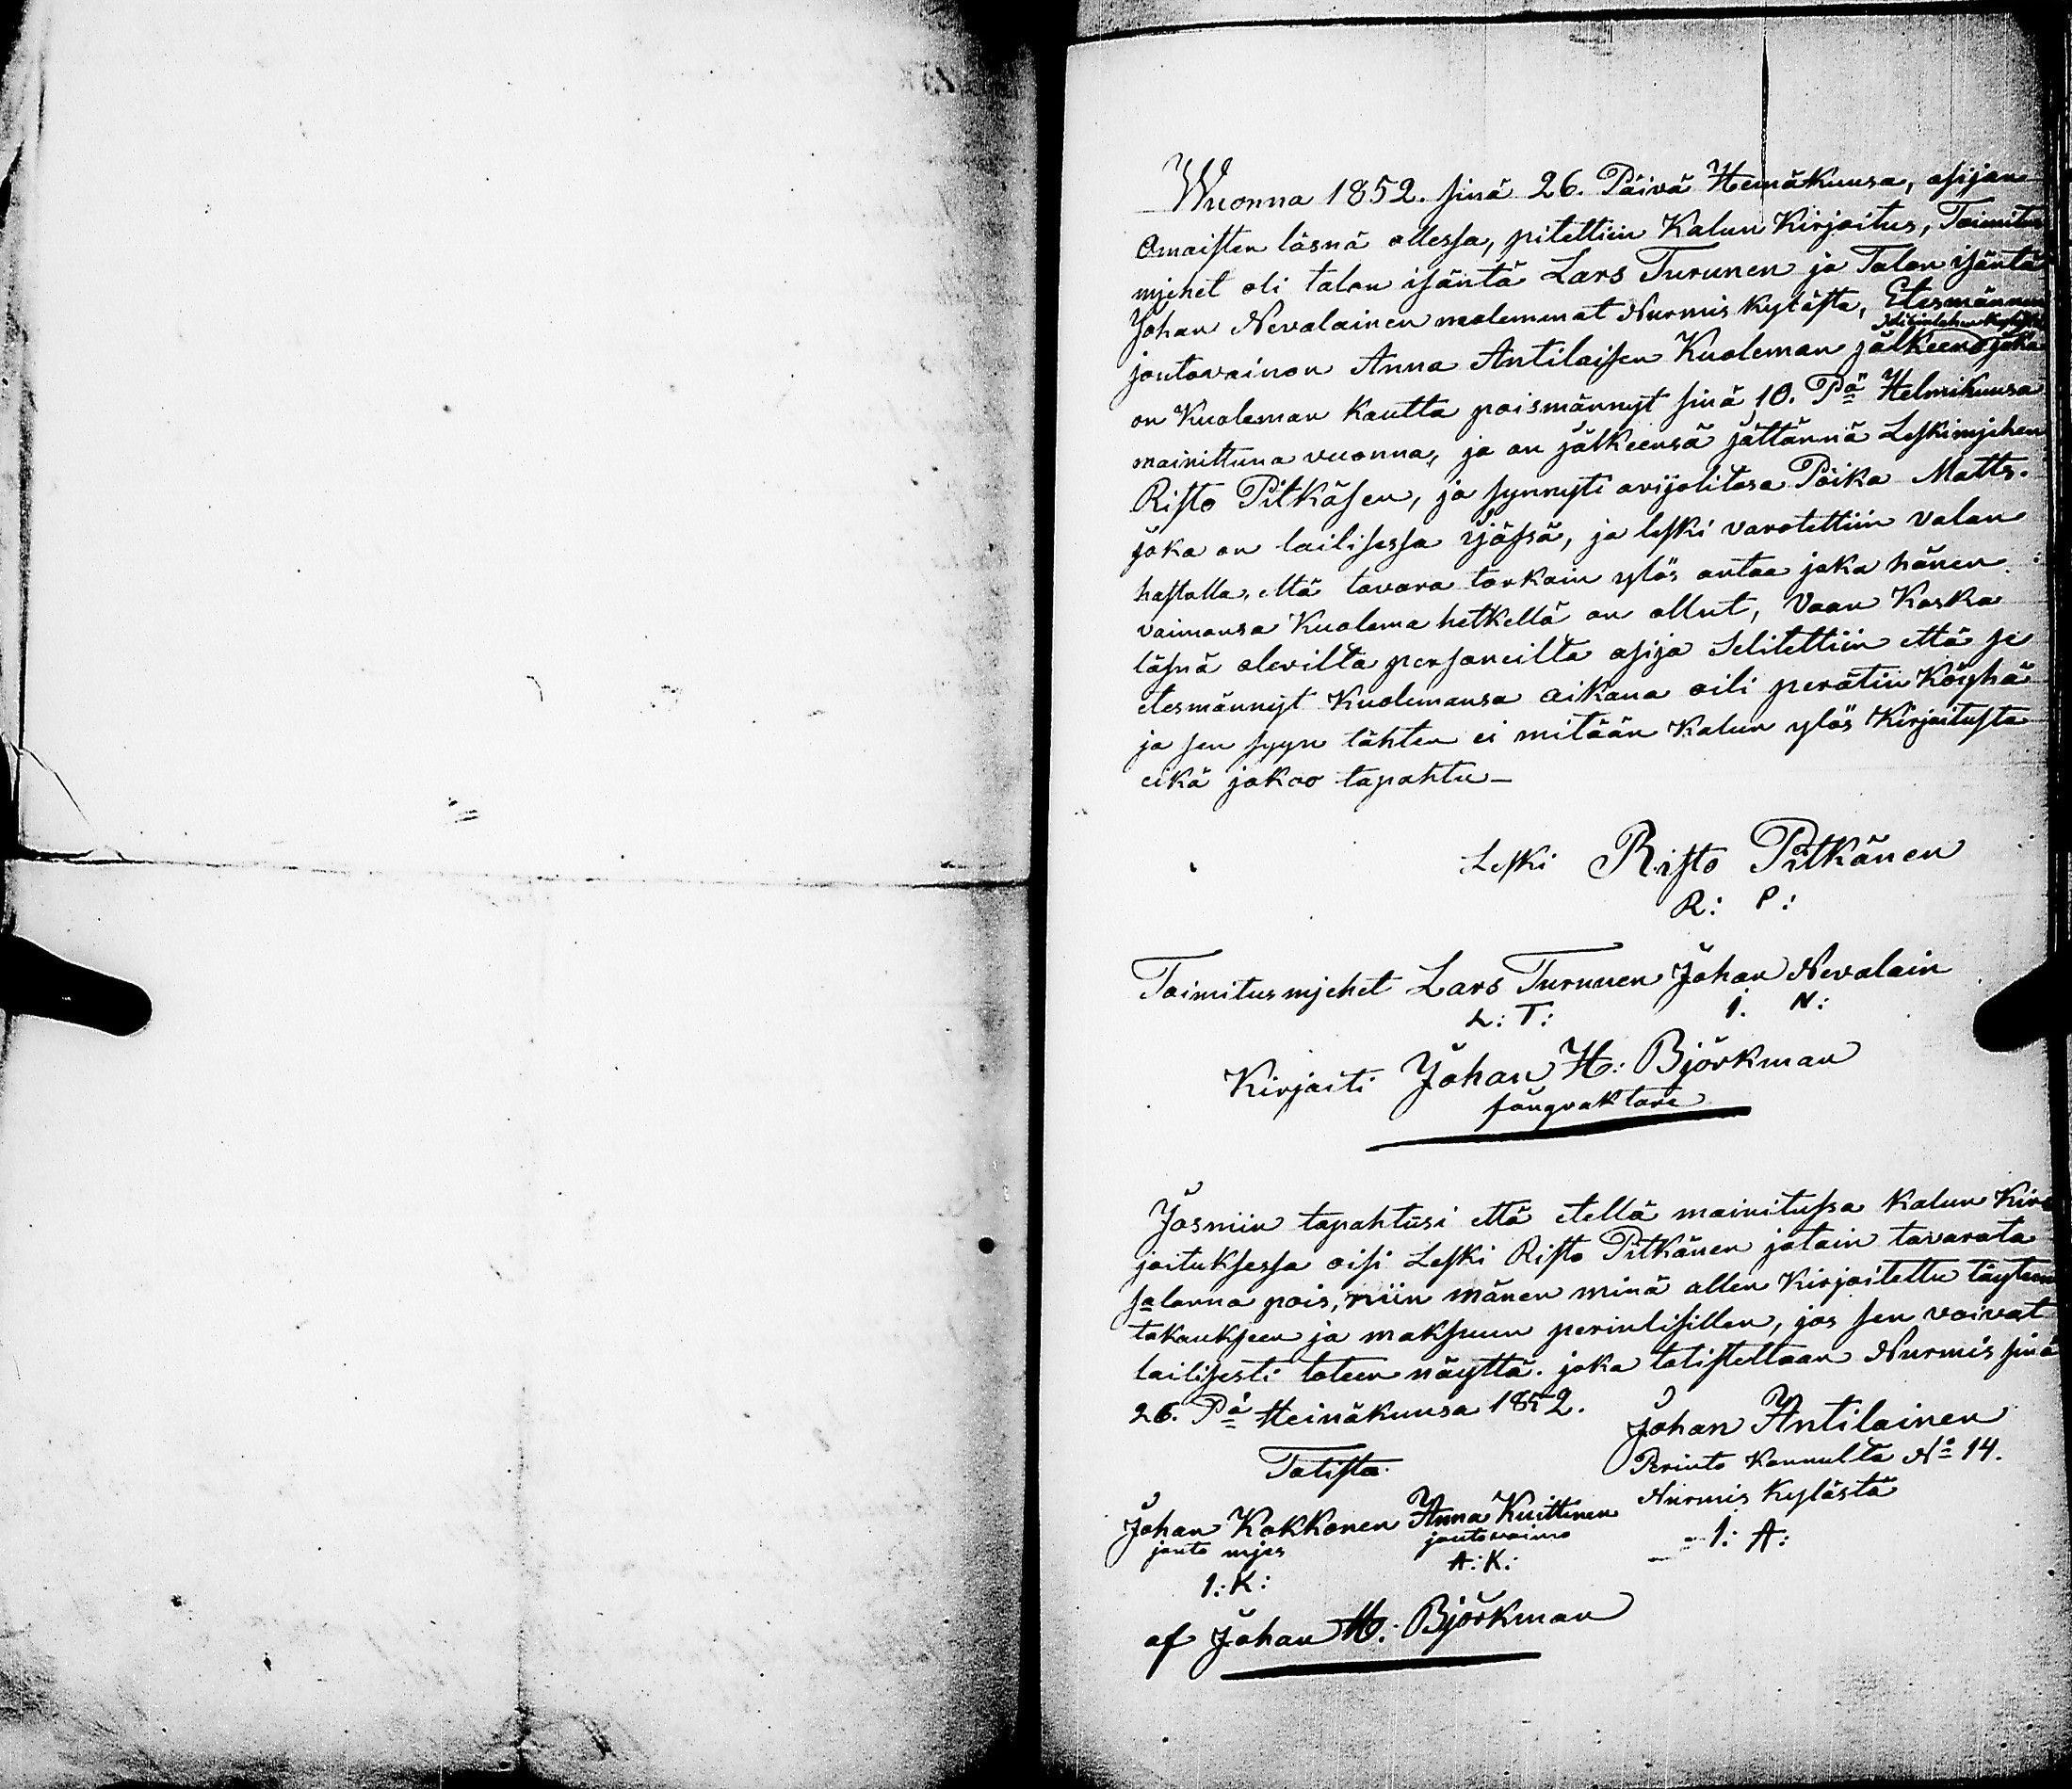 Wuonna 1852. sinä 26. Päivä Heinäkuusa, asijan
Omaisten läsnä ollessa, pitettiin Kalun Kirjoitus, Toimitus
mjehet oli talon isäntä Lars Turunen ja Talon isäntä
Johan Nevalainen molemmat Nurmis kylästä, Etesmännen
joutovaimon Anna Antilaisen Kuoleman jälkeen joka
on Kuoleman kautta poismännyt sinä 10. Pä Helmikuusa
mainittuna vuonna, ja on jälkeensä jättännä Leskimjehen
Risto Pitkäsen, ja synnyti avijolitosa Poika Matts.
joka on lailisessa ijässä, ja leski varotettiin valan
hastolla, että tavara tarkoin ylös antaa joka hänen
vaimonsa Kuolema hetkellä on ollut, Vaan Koska
läsnä olevilta personeilta asija selitettiin että se
etesmännyt Kuolemansa aikana oili perätin Köyhä
ja sen syyn tähten ei mitään Kalun ylös Kirjoitusta
eikä jakoo tapahtu—
Leski Risto Pitkänen
R: P:
Toimitusmjehet Lars Turunen Johan Nevalain
L: T: I. N:
Kirjoiti Johan H: Björkman
fångvaktare
Josniin tapahtusi että etellä mainitussa Kalun Kir-
joituksessa oisi Leski Risto Pitkänen jotain tavarata
salanna pois, niin mänen minä allen Kirjoitettu täyteen
takaukseen ja maksuun perinlisillen, jos sen voivat
lailisesti toteen näyttä. joka totistettaan Nurmis sinä
26. Pä Heinäkuusa 1852.
Johan Antilainen
Perinto Kannulta No 14.
Nurmis Kylästä
I: A:
Totista:
Johan Kokkonen Anna Kuittinen
jouto mjes joutovaimo
I: K: A: K:
af Johan H: Björkman